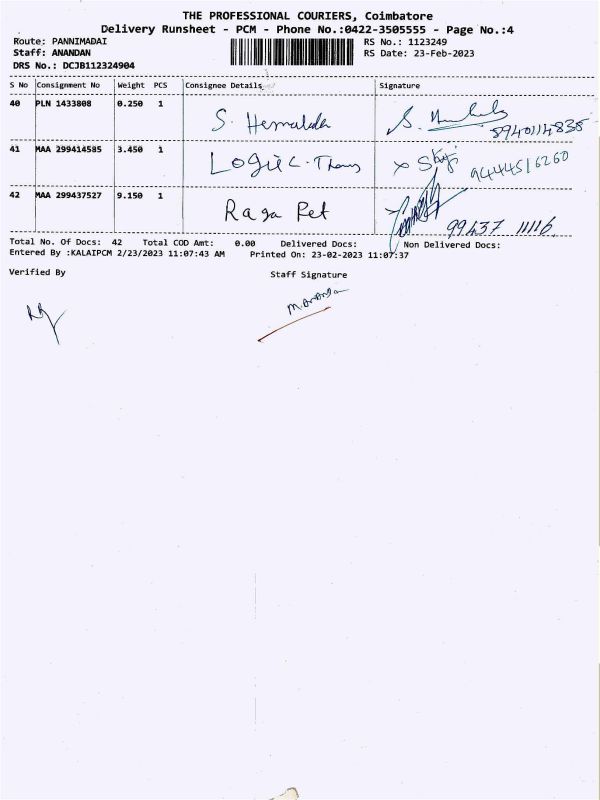 THE PROFESSIONAL COURIERS, Coimbatore
Delivery Runsheet - PCM - Phone No.:0422-3505555 - Page No.:4
Route: PANNIMADAI
Staff: ANANDAN
DRS No.: DCJB112324904
RS No.: 1123249
RS Date: 23-Feb-2023
S No Consignment No Weight PCS Consignee Details Signature
40 PLN 1433808 0.250 1 S. Hemalatha
41 MAA 299414585 3.450 1 9444516260
42 MAA 299437527 9.150 1 Raga Pet 99437 11116
Total No. Of Docs: 42 Total COD Amt: 0.00 Delivered Docs: Non Delivered Docs:
Entered By :KALAIPCM 2/23/2023 11:07:43 AM Printed On: 23-02-2023 11:07:37
Verified By Staff Signature